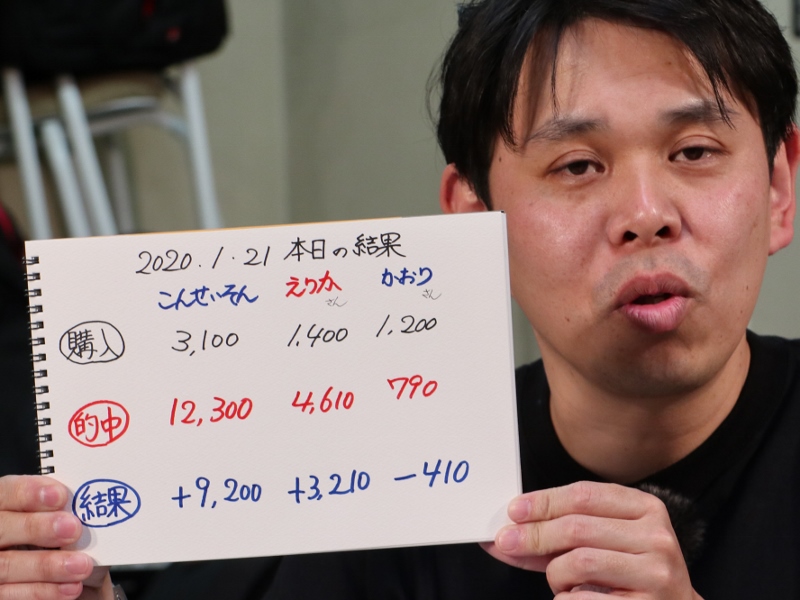 2020.1.21 本日の結果
こんせいそん えりか さん かおり さん
購入 3,100 1.400 1.200
的中 12,300 4,610 790
結果 +9,200 +3,210 -410